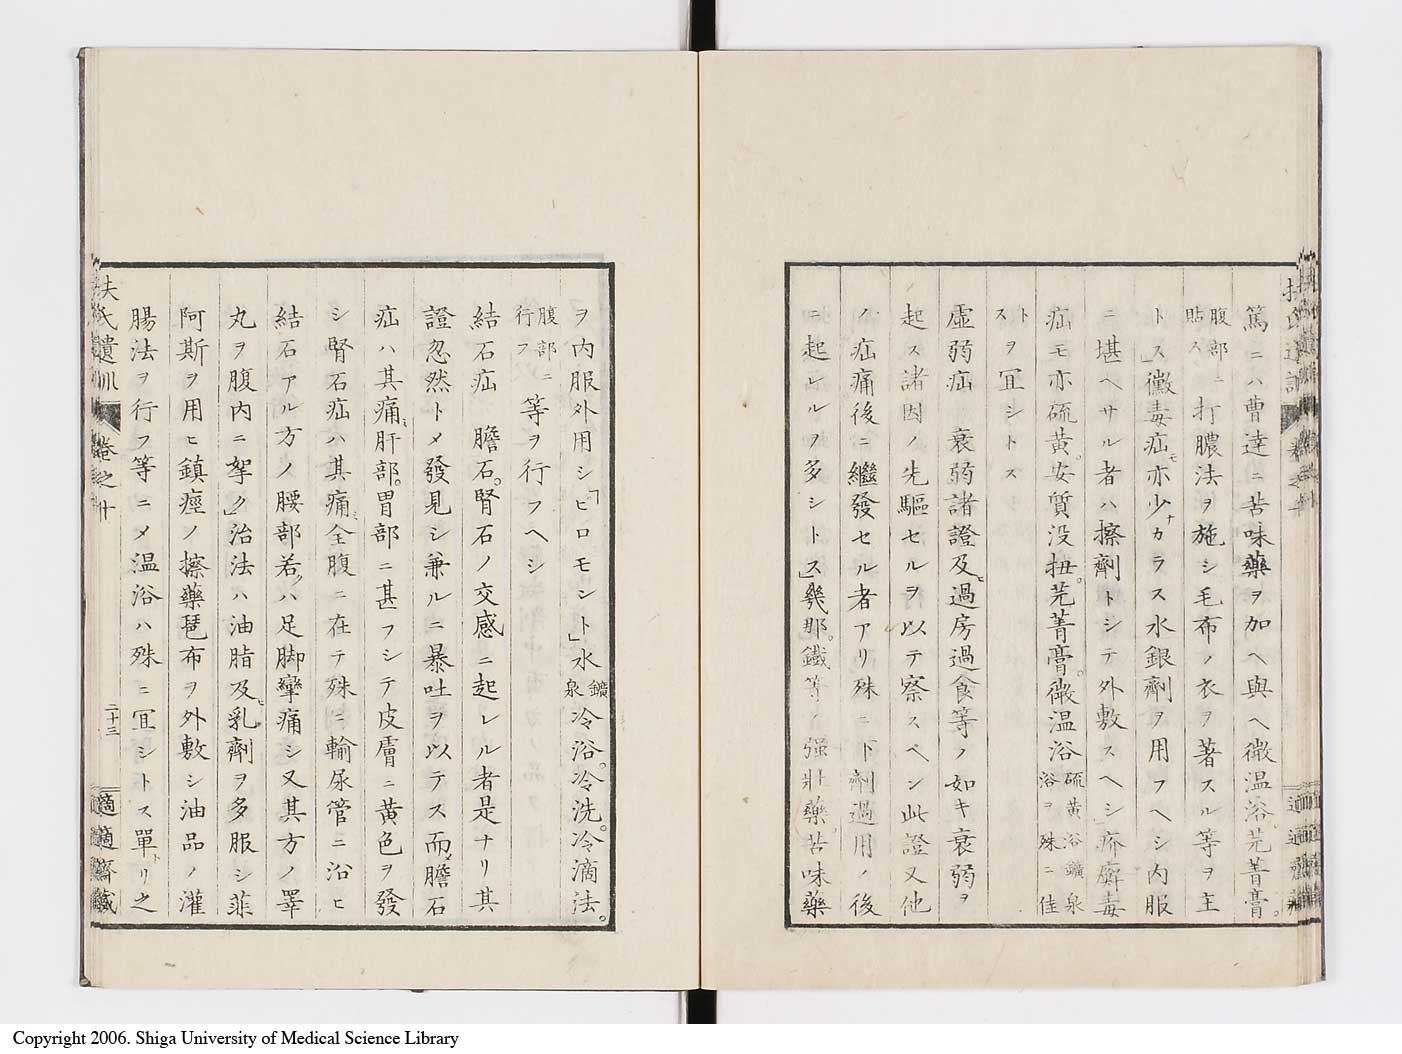 篤ニハ曹達ニ苦味藥ヲ加ヘ與ヘ微温浴芫菁膏。
腹部ニ貼ス打膿法ヲ施シ毛布ノ衣ヲ著スル等ヲ主
トス」黴毒疝モ亦少ナカラス水銀劑ヲ用フヘシ内服
ニ堪ヘサル者ハ擦劑トシテ外敷スヘシ」疥癬毒
疝モ亦硫黄。安質没扭。芫菁膏。微温浴硫黄浴鑛泉浴ヲ殊ニ佳
トスヲ冝シトス
虚弱疝 衰弱諸證及ヒ過房過食等ノ如キ衰弱ヲ
起ス諸因ノ先驅セルヲ以テ察スベシ此證又他
ノ疝痛後ニ繼發セル者アリ殊ニ下劑過用ノ後
ニ起レルヲ多シトス」幾那。鐵等ノ强壯藥苦味藥
ヲ内服外用シ「ヒロモント」水鑛泉冷浴。冷洗。冷滴法。
腹部ニ行フ等ヲ行フヘシ
結石疝 膽石。腎石ノ交感ニ起レル者是ナリ其
證忽然トメ發見シ兼ルニ暴吐ヲ以テス而メ膽石
疝ハ其痛ミ肝部。胃部ニ甚フシテ皮膚ニ黄色ヲ發
シ腎石疝ハ其痛ミ全腹ニ在テ殊ニ輸尿管ニ沿ヒ
結石アル方ノ腰部若クハ足脚攣痛シ又其方ノ睪
丸ヲ腹内ニ挐ク」治法ハ油脂及ヒ乳劑ヲ多服シ菲
阿斯ヲ用ヒ鎮痙ノ擦藥琶布ヲ外敷シ油品ノ灌
腸法ヲ行フ等ニメ温浴ハ殊ニ冝シトス單トリ之
扶氏遺訓 卷之廿
二十三
適適齋藏